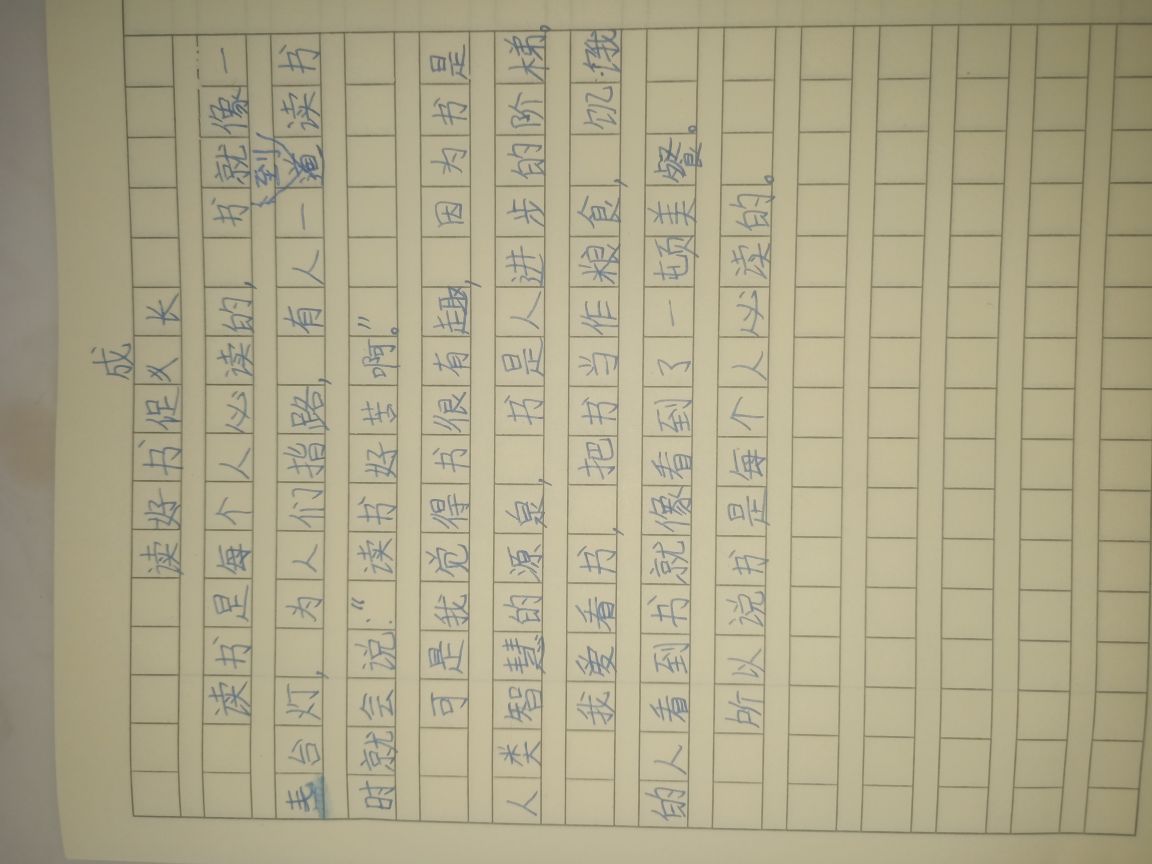 读好书促成长
读书是每个人必读的，书就像一
台灯，为人们指路，有人一到读书
时就会说：“读书好苦啊。”
可是我觉得书很有趣，因为书是
人类智慧的源泉，书是人进步的阶梯。
我爱看书，把书当作粮食，饥饿
的人看到书就像看到了一顿美餐。
所以说书是每个人必读的。